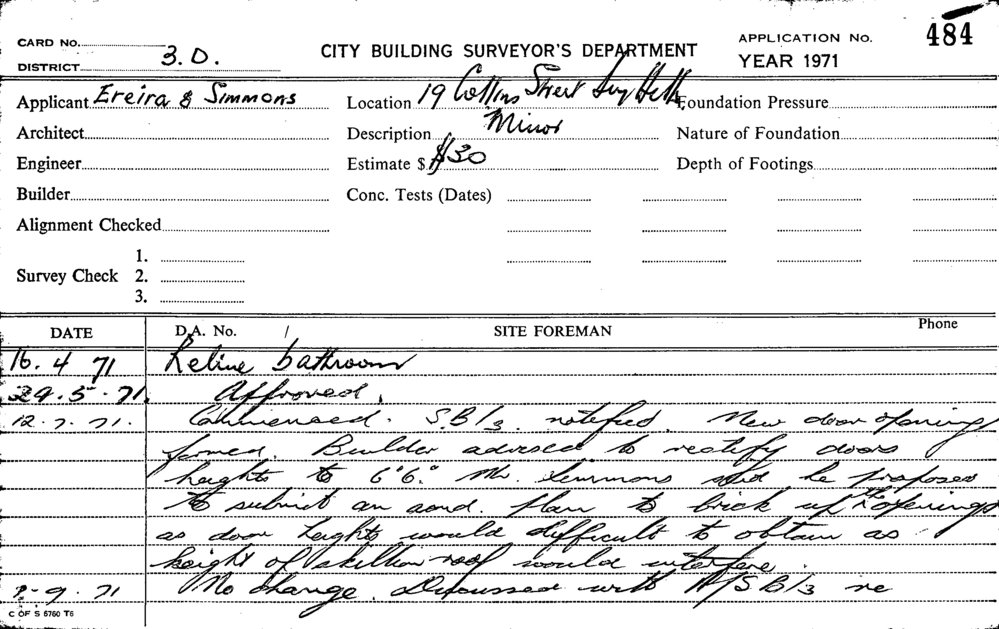 CARD NO. CITY BUILDING SURVEYOR'S DEPARTMENT APPLICATION NO. 484
DISTRICT 3.D. YEAR 1971
Applicant Ereira & Simmons Location 19 Collins Street Surry Hills Foundation Pressure
Architect Description Minor Nature of Foundation
Engineer Estimate $ $30 Depth of Footings
Builder Conc. Tests (Dates)
Alignment Checked
1.
Survey Check 2.
3.
DATE D.A. No. / SITE FOREMAN Phone
16.4.71 Reline bathroom
29.5.71. Approved.
12.7.71. Commenced. S.B/3 notified. New door opening
formed. Builder advised to rectify doors
heights to 6'6". Mr. Simmons said he proposed
to submit an amd. plan to brick up the openings
as door heights would difficult to obtain as
height of skillion roof would interfere.
No change. Discussed with A/S.B/3 re
C OF S 5760 T6